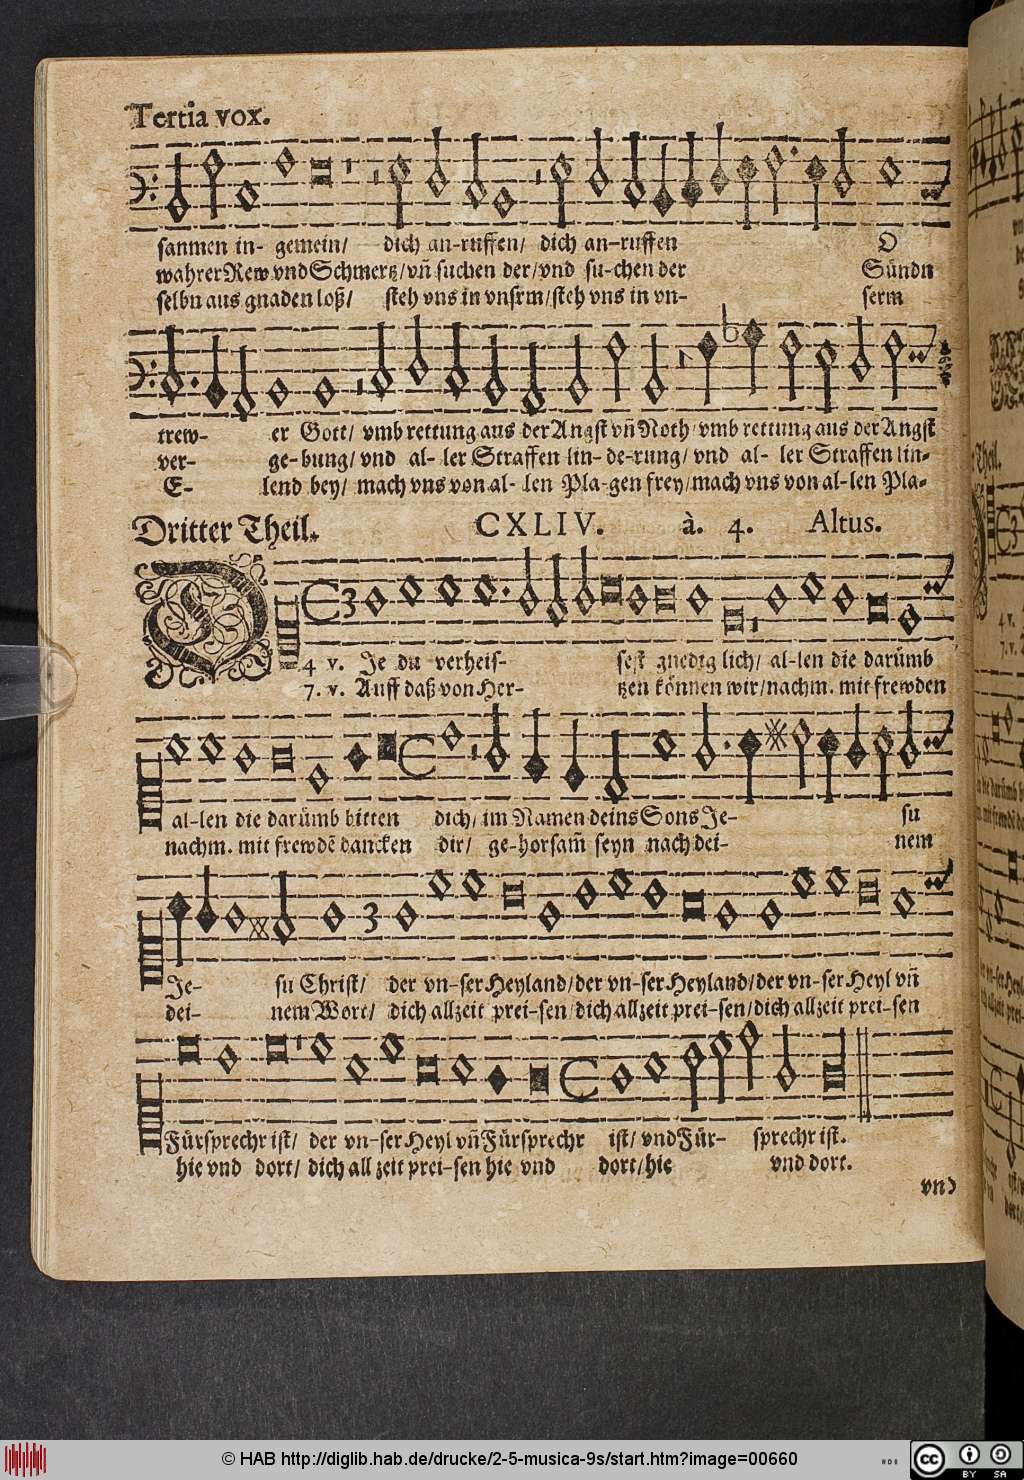 Tertia vox.
sanmen in- gemein/ dich an-ruffen/ dich an-ruffen O
wahrer Rew vnd Schmertz/ vñ suchen der/ vnd su-chen der Sündn
selbn aus gnaden loß/ steh vns in vnsrm/ steh vns in vn- serm
trew- er Gott/ vmb rettung aus der Angst vñ Noth/ vmb rettung aus der Angst
ver- ge-bung/ vnd al- ler Straffen lin- de-rung/ vnd al- ler Straffen lin-
E- lend bey/ mach vns von al- len Pla-gen frey/ mach vns von al-len Pla-
Dritter Theil. CXLIV. à. 4. Altus.
D
4 v. Je du verheis- sest gnedig lich/ al-len die darümb
7. v. Auff daß von Her- tzen können wir/ nachm. mit frewden
al-len die darümb bitten dich/ im Namen deins Sons Je- su
nachm. mit frewdē dancken dir/ ge-horsam̃ seyn nach dei- nem
Je- su Christ/ der vn-ser Heyland/ der vn-ser Heyland/ der vn-ser Heyl vñ
dei- nem Wort/ dich allzeit prei-sen/ dich allzeit prei-sen/ dich allzeit prei-sen
Fürsprechr ist/ der vn-ser Heyl vñ Fürsprechr ist/ vnd Für- sprechr ist.
hie vnd dort/ dich all zeit prei-sen hie vnd dort/ hie vnd dort.
vnd
© HAB http://diglib.hab.de/drucke/2-5-musica-9s/start.htm?image=00660
cc BY SA